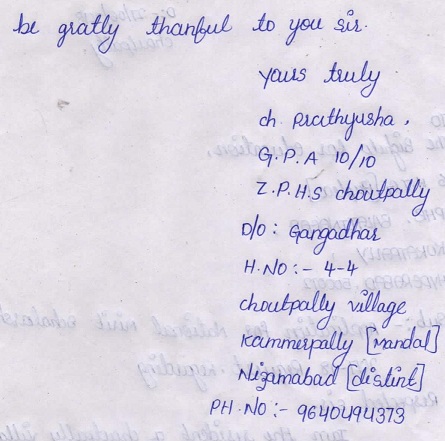 be gratly thanful to you sir.
yours truly
ch. prathyusha.
G.P.A 10/10
Z.P.H.S choutpally
D/o : Gangadhar
H.NO :- 4-4
choutpally village
Kammerpally [mandal]
Nizamabad [distint]
PH.NO :- 9640494373